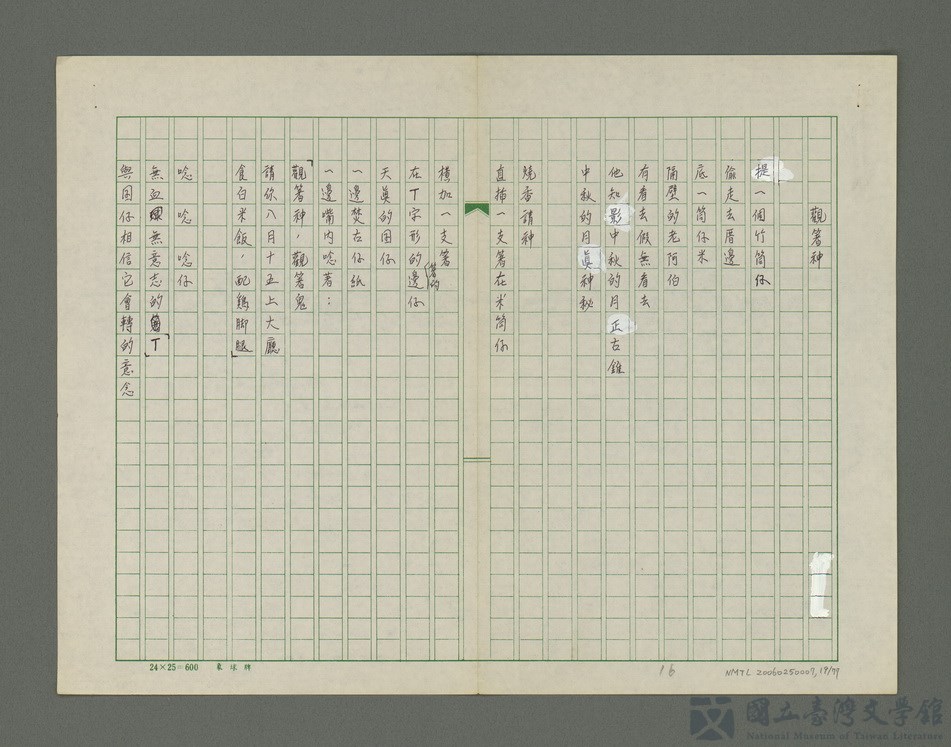 觀箸神
提一個竹筒仔
偷走去厝邊
底一筒仔米
隔壁的老阿伯
有看去假無看去
他知影中秋的月正古錐
中秋的月真神秘
燒香請神
直插一支箸在米筒仔
橫加一支箸
在丁字形的箸的邊仔
天真的囝仔
一邊焚古仔紙
一邊嘴內唸著：
「觀箸神，觀箸鬼
請你八月十五上大廳
食白米飯，配雞腳腿」
唸 唸 唸仔
無血無意志的「丁」
與囝仔相信它會轉的意念
24×25=600 象球牌
16
NMTL 20060250007, 19/77
國立臺灣文學館
National Museum of Taiwan Literature